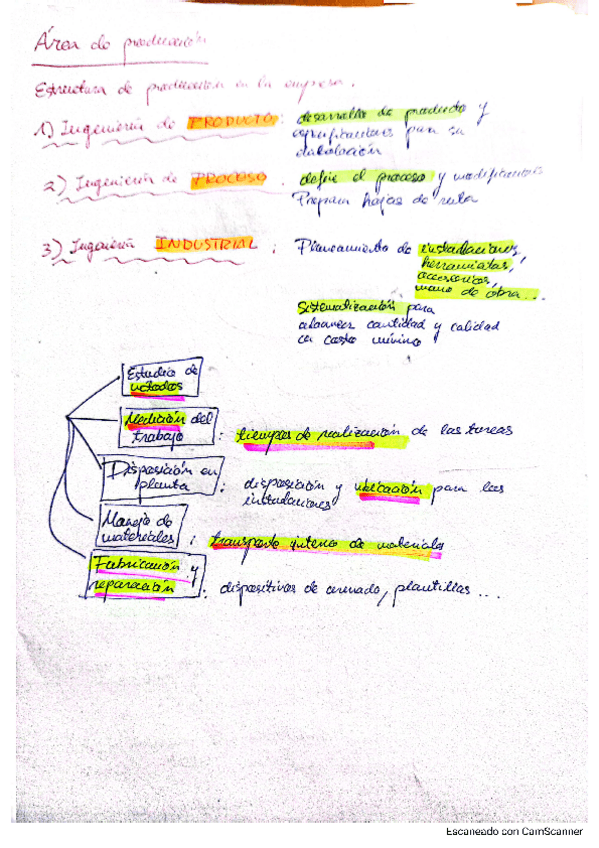 Área de producción
Estructura de producción en la empresa.
1) Ingeniería de PRODUCTO: desarrollo de producto y
especificaciones para su
elaboración
2) Ingeniería de PROCESO. define el proceso y modificaciones
Prepara hojas de ruta
3) Ingeniería INDUSTRIAL: Planeamiento de instalaciones,
herramientas,
accesorios,
mano de obra...
Sistematización para
alcanzar cantidad y calidad
en costo mínimo
Estudio de
métodos
Medición del
trabajo : tiempos de realización de las tareas
Disposición en
planta : disposición y ubicación para las
instalaciones
Manejo de
materiales : transporte interno de materiales
Fabricación y
reparación : dispositivos de armado, plantillas ...
Escaneado con CamScanner